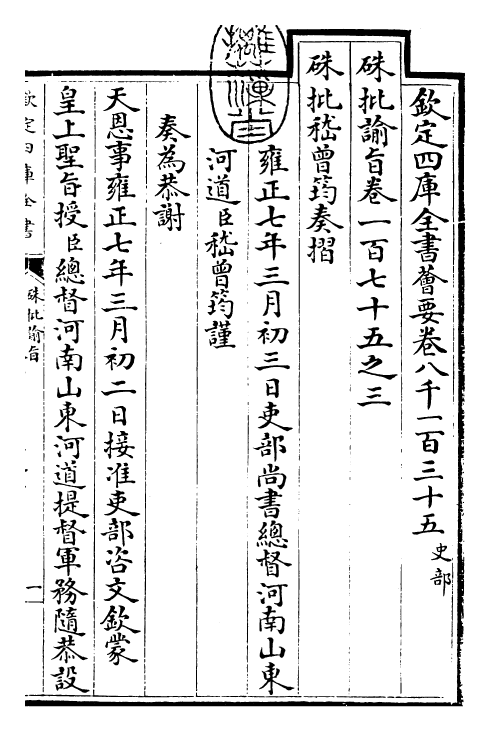 欽定四庫全書薈要卷八千一百三十五 史部
硃批諭旨卷一百七十五之三
硃批嵇曾筠奏摺
雍正七年三月初三日吏部尚書總督河南山東
河道臣嵇曾筠謹
奏為恭謝
天恩事雍正七年三月初二日接准吏部咨文欽蒙
皇上聖旨授臣總督河南山東河道提督軍務隨恭設
欽定四庫全書
硃批諭旨
一